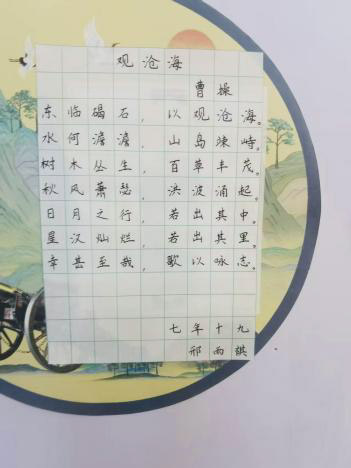 观沧海
曹操
东临碣石，以观沧海。
水何澹澹，山岛竦峙。
树木丛生，百草丰茂。
秋风萧瑟，洪波涌起。
日月之行，若出其中。
星汉灿烂，若出其里。
幸甚至哉，歌以咏志。
七年十九
邢雨骐